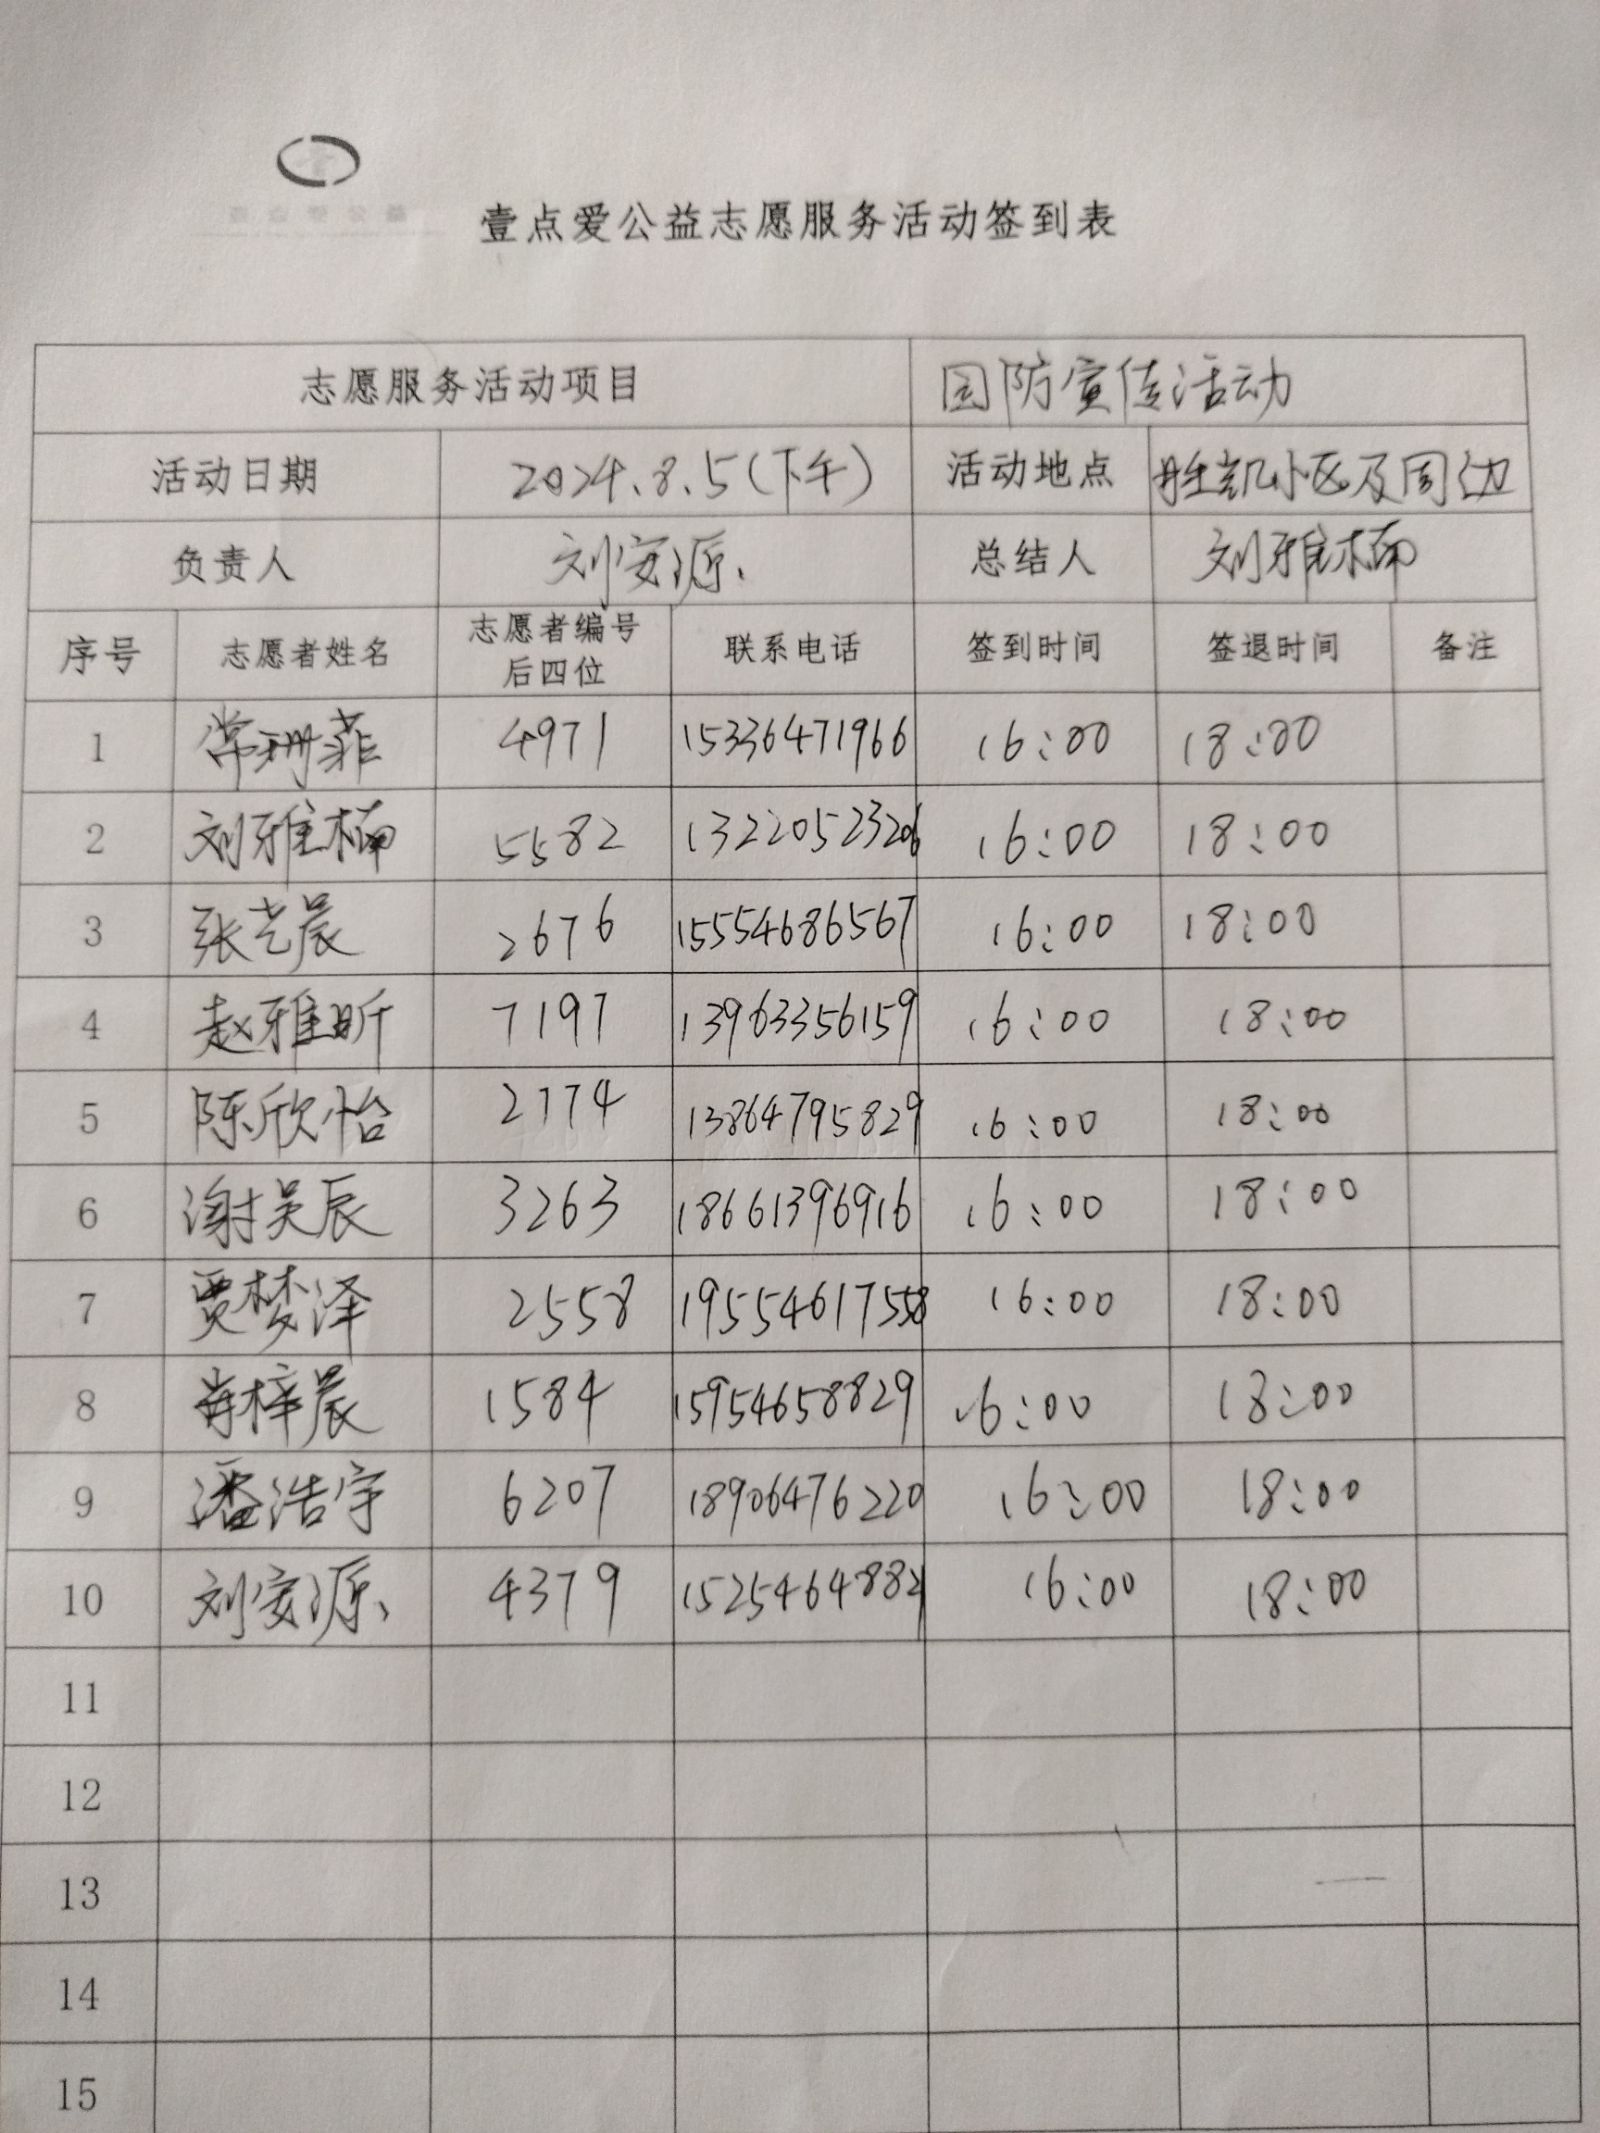 壹点爱公益志愿服务活动签到表
志愿服务活动项目 国防宣传活动
活动日期 2024.8.5(下午) 活动地点 胜凯小区及周边
负责人 刘安源 总结人 刘雅楠
序号 志愿者姓名 志愿者编号后四位 联系电话 签到时间 签退时间 备注
1 常珊菲 4971 15336471966 16:00 18:00
2 刘雅楠 5582 13220523206 16:00 18:00
3 张艺晨 2676 15554686567 16:00 18:00
4 赵雅昕 7197 13963356159 16:00 18:00
5 陈欣怡 2774 13864795829 16:00 18:00
6 谢昊辰 3263 18661396916 16:00 18:00
7 贾梦泽 2558 19554617558 16:00 18:00
8 肖梓晨 1584 15954658829 16:00 18:00
9 潘浩宇 6207 18906476220 16:00 18:00
10 刘安源 4379 16:00 18:00
11
12
13
14
15